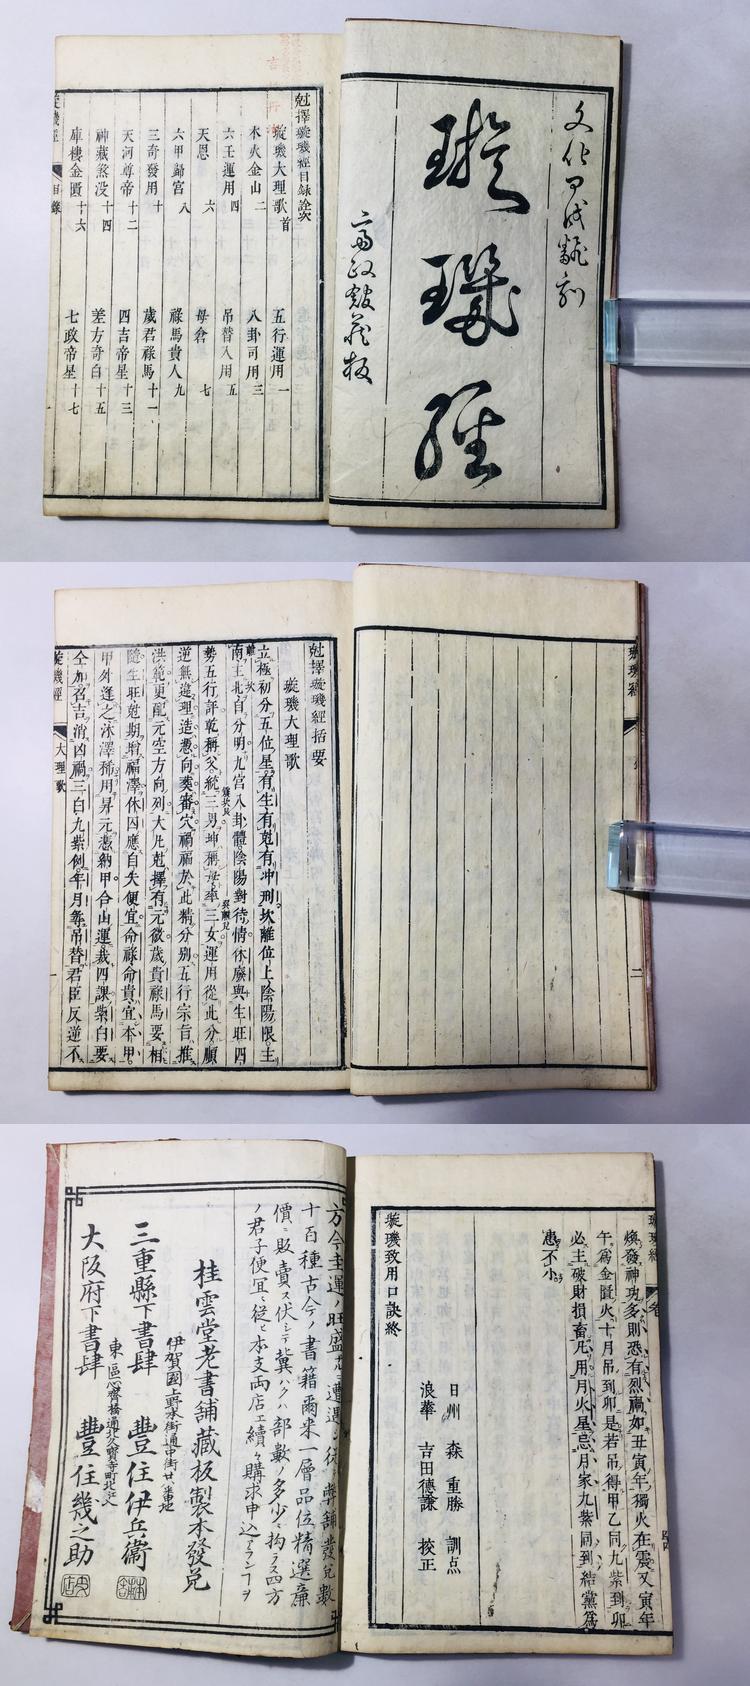 文化甲戌翻刻
璇璣經
尅擇璇璣經目録詮次
璇璣大理歌 首
五行運用 一
木火金山 二
八卦司用 三
六壬運用 四
吊替入用 五
天恩 六
母倉 七
六甲歸宮 八
祿馬貴人 九
三奇發用 十
歲君祿馬 十一
天河尊帝 十二
四吉帝星 十三
神藏煞没 十四
差方奇白 十五
庫樓金匱 十六
七政帝星 十七
璇璣經
目錄
一
璇璣經
二
尅擇璇璣經括要
璇璣大理歌
立極初分五位星有生有尅有冲刑坎離位上陰陽限主
南主北自分明九宮八卦體陰陽對待情休廢與生旺四
勢五行評乾稱父統三男坤稱母率三女運用從此分順
逆無違理造憑向葵審穴禍福於此精分別五行宗旨推
洪範更配元空方向列大凡尅擇有元微歲貴祿馬要相
隨生旺尅期增福澤休囚應自失便宜命祿命貴宜本甲
甲外逢之沐澤稀用昇元憑納甲合山運裁四課紫白要
仝加名吉消凶禍三白九紫例年月奪吊替君臣反逆不
璇璣經
大理歌
一
璇璣經
煥發神功多則恐有烈禍如丑寅年獨火在震又寅年
午爲金匱火十月吊到卯是若吊得甲乙同九紫到卯
必主破財損畜凡用月火星忌月家九紫同到結黨爲
患不小
璇璣致用口訣終
日州 森 重勝 訓点
浪華 吉田德謙 挍正
方今圭運ノ旺盛
十百種古今ノ書籍爾来一層品位精選廉
價ニ販賣ス伏シテ冀ハクハ部數ノ多少ニ拘ラス四方
ノ君子便宜ニ從ヒ本支両店エ續々購求申込アランヿヲ
桂雲堂老書舖藏板製本發兌
伊賀國上野水街通中街廿八番地
三重縣下書肆 豐住伊兵衞
東區心齋橋通北久寳寺町北江入
大阪府下書肆 豐住幾之助